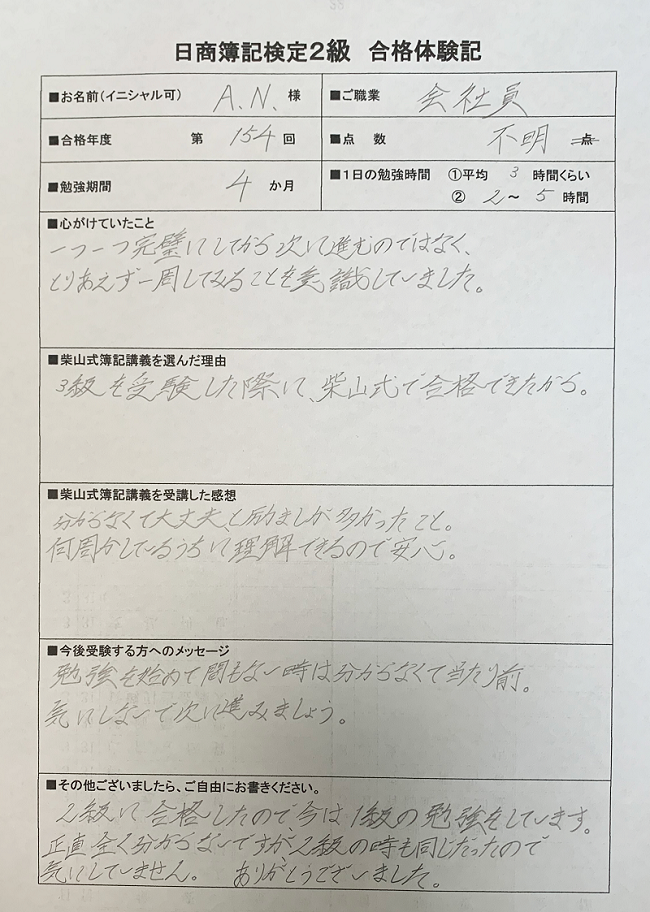 日商簿記検定2級 合格体験記
■お名前(イニシャル可) A.N. 様
■ご職業 会社員
■合格年度 第 154 回
■点 数 不明 点
■勉強期間 4 か月
■1日の勉強時間 ①平均 3 時間くらい
② 2～5 時間
■心がけていたこと
一つ一つ完璧にしてから次に進むのではなく、
とりあえず一周してみることを意識していました。
■柴山式簿記講義を選んだ理由
3級を受験した際に、柴山式で合格できたから。
■柴山式簿記講義を受講した感想
分からなくて大丈夫、と励ましが多かったこと。
何周かしているうちに理解できるので安心。
■今後受験する方へのメッセージ
勉強を始めて間もない時は分からなくて当たり前。
気にしないで次に進みましょう。
■その他ございましたら、ご自由にお書きください。
2級に合格したので今は1級の勉強をしています。
正直全く分からないですが、2級の時も同じだったので
気にしていません。 ありがとうございました。